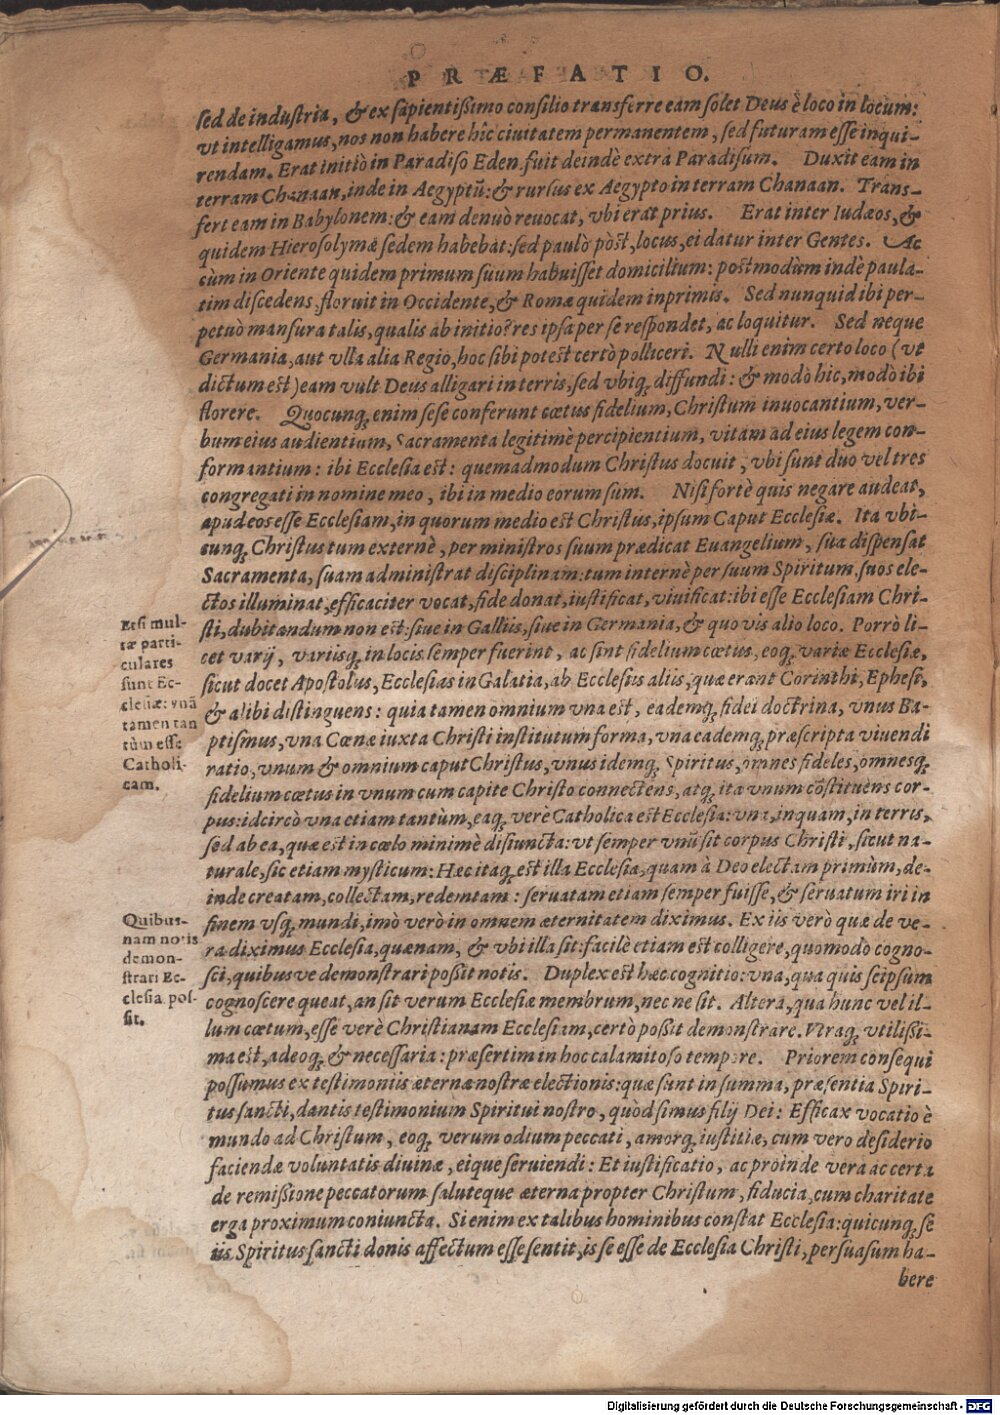 PRÆFATIO.
sed de industria, & ex sapientißimo consilio transferre eam solet Deus è loco in locum:
vt intelligamus, nos non habere hîc ciuitatem permanentem, sed futuram esse inqui-
rendam. Erat initiò in Paradiso Eden. fuit deindè extra Paradisum. Duxit eam in
terram Chanaan, inde in Aegyptũ: & rursus ex Aegypto in terram Chanaan. Trans-
fert eam in Babylonem: & eam denuò reuocat, vbi erat prius. Erat inter Iudæos, &
quidem Hierosolymæ sedem habebat: sed paulò pòst, locus, ei datur inter Gentes. Ac
cùm in Oriente quidem primum suum habuisset domicilium: postmodùm indè paula-
tim discedens, floruit in Occidente, & Romæ quidem inprimis. Sed nunquid ibi per-
petuò mansura talis, qualis ab initio? res ipsa per se respondet, ac loquitur. Sed neque
Germania, aut vlla alia Regio, hoc sibi potest certò polliceri. Nulli enim certo loco (vt
dictum est) eam vult Deus alligari in terris, sed vbiq; diffundi: & modò hic, modò ibi
florere. Quocunq; enim sese conferunt cœtus fidelium, Christum inuocantium, ver-
bum eius audientium, Sacramenta legitimè percipientium, vitam ad eius legem con-
formantium: ibi Ecclesia est: quemadmodum Christus docuit, vbi sunt duo vel tres
congregati in nomine meo, ibi in medio eorum sum. Nisi fortè quis negare audeat,
apud eos esse Ecclesiam, in quorum medio est Christus, ipsum Caput Ecclesiæ. Ita vbi-
cunq; Christus tum externè, per ministros suum prædicat Euangelium, sua dispensat
Sacramenta, suam administrat disciplinam: tum internè per suum Spiritum, suos ele-
ctos illuminat, efficaciter vocat, fide donat, iustificat, viuificat: ibi esse Ecclesiam Chri-
sti, dubitandum non est: siue in Galliis, siue in Germania, & quo vis alio loco. Porrò li-
cet varij, variisq; in locis semper fuerint, ac sint fidelium cœtus, eoq; variæ Ecclesiæ,
sicut docet Apostolus, Ecclesias in Galatia, ab Ecclesiis aliis, quæ erant Corinthi, Ephesi,
& alibi distinguens: quia tamen omnium vna est, eademq; fidei doctrina, vnus Ba-
ptismus, vna Cœnæ iuxta Christi institutum forma, vna eademq; præscripta viuendi
ratio, vnum & omnium caput Christus, vnus idemq; Spiritus, omnes fideles, omnesq;
fidelium cœtus in vnum cum capite Christo connectens, atq; ita vnum cõstituens cor-
pus: idcircò vna etiam tantùm, eaq; verè Catholica est Ecclesia: vna, inquam, in terris,
sed ab ea, quæ est in cœlo minimè disiuncta: vt semper vnũ sit corpus Christi, sicut na-
turale, sic etiam mysticum: Hæc itaq; est illa Ecclesia, quam à Deo electam primùm, de-
inde creatam, collectam, redemtam: seruatam etiam semper fuisse, & seruatum iri in
finem vsq; mundi, imò verò in omnem æternitatem diximus. Ex iis verò quæ de ve-
ra diximus Ecclesia, quænam, & vbi illa sit: facilè etiam est colligere, quomodo cogno-
sci, quibusve demonstrari poßit notis. Duplex est hæc cognitio: vna, qua quis seipsum
cognoscere queat, an sit verum Ecclesiæ membrum, nec ne sit. Altera, qua hunc vel il-
lum cœtum, esse verè Christianam Ecclesiam, certò poßit demonstrare. Vtraq; vtilißi-
ma est, adeoq; & necessaria: præsertim in hoc calamitoso tempore. Priorem consequi
possumus ex testimoniis æternæ nostræ electionis: quæ sunt in summa, præsentia Spiri-
tus sancti, dantis testimonium Spiritui nostro, quòd simus filij Dei: Efficax vocatio è
mundo ad Christum, eoq; verum odium peccati, amorq; iustitiæ, cum vero desiderio
faciendæ voluntatis diuinæ, eique seruiendi: Et iustificatio, ac proinde vera ac certa
de remißione peccatorum saluteque æterna propter Christum, fiducia, cum charitate
erga proximum coniuncta. Si enim ex talibus hominibus constat Ecclesia: quicunq; se
iis Spiritus sancti donis affectum esse sentit, is se esse de Ecclesia Christi, persuasum ha-
bere
Etsi mul-
tæ parti-
culares
sunt Ec-
clesiæ: vnã
tamen tan
tùm esse
Catholi-
cam.
Quibus-
nam notis
demon-
strari Ec-
clesia pos-
sit.
Digitalisierung gefördert durch die Deutsche Forschungsgemeinschaft - DFG